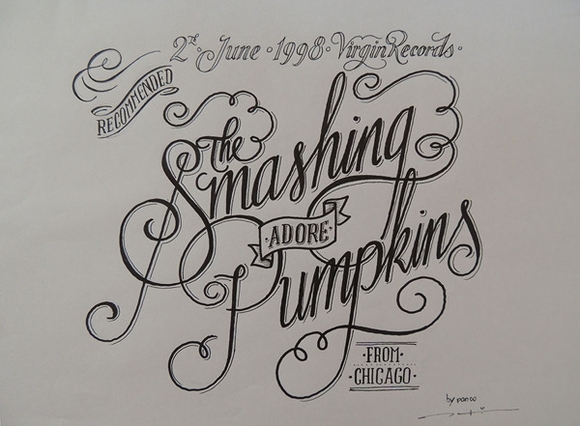 2nd · June · 1998 · Virgin Records ·
RECOMMENDED
The
Smashing
· ADORE ·
Pumpkins
· FROM ·
· CHICAGO ·
by panco